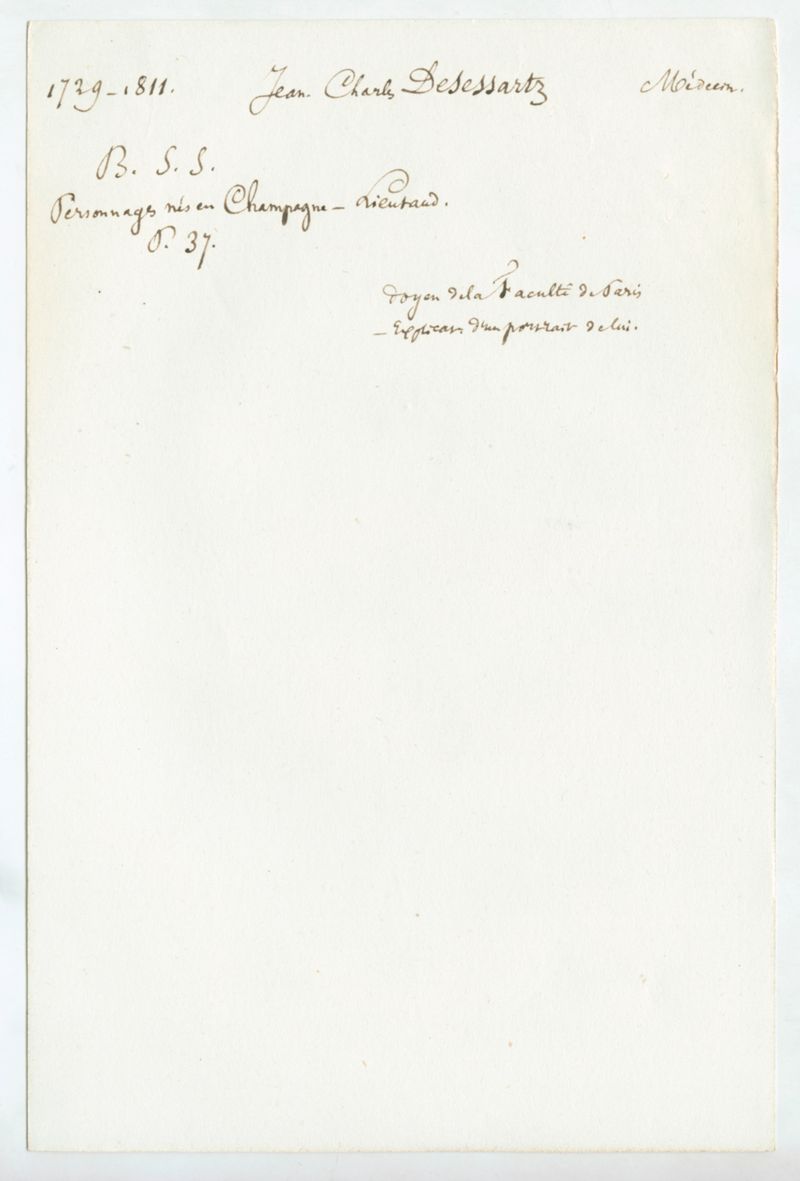 1729-1811. Jean. Charles Desessartz Médecin.
B. S. S.
Personnages nés en Champagne - Lieutaud.
P. 37.
doyen de la Faculté de Paris
- d'un portrait de lui.